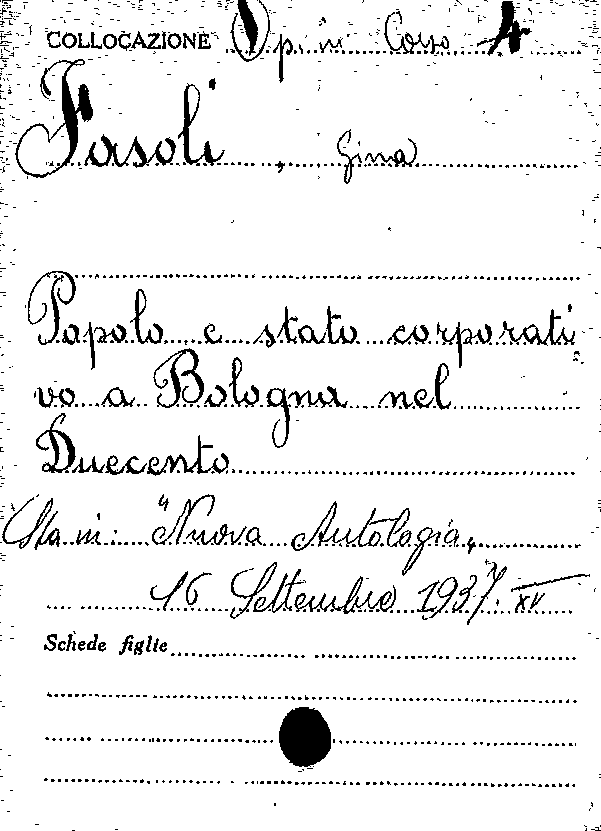 COLLOCAZIONE Op. in Corso 4
Fasoli, Gina
Popolo e stato corporati
vo a Bologna nel
Duecento
Sta in: "Nuova Antologia„
16 Settembre 1937. XV
Schede figlie